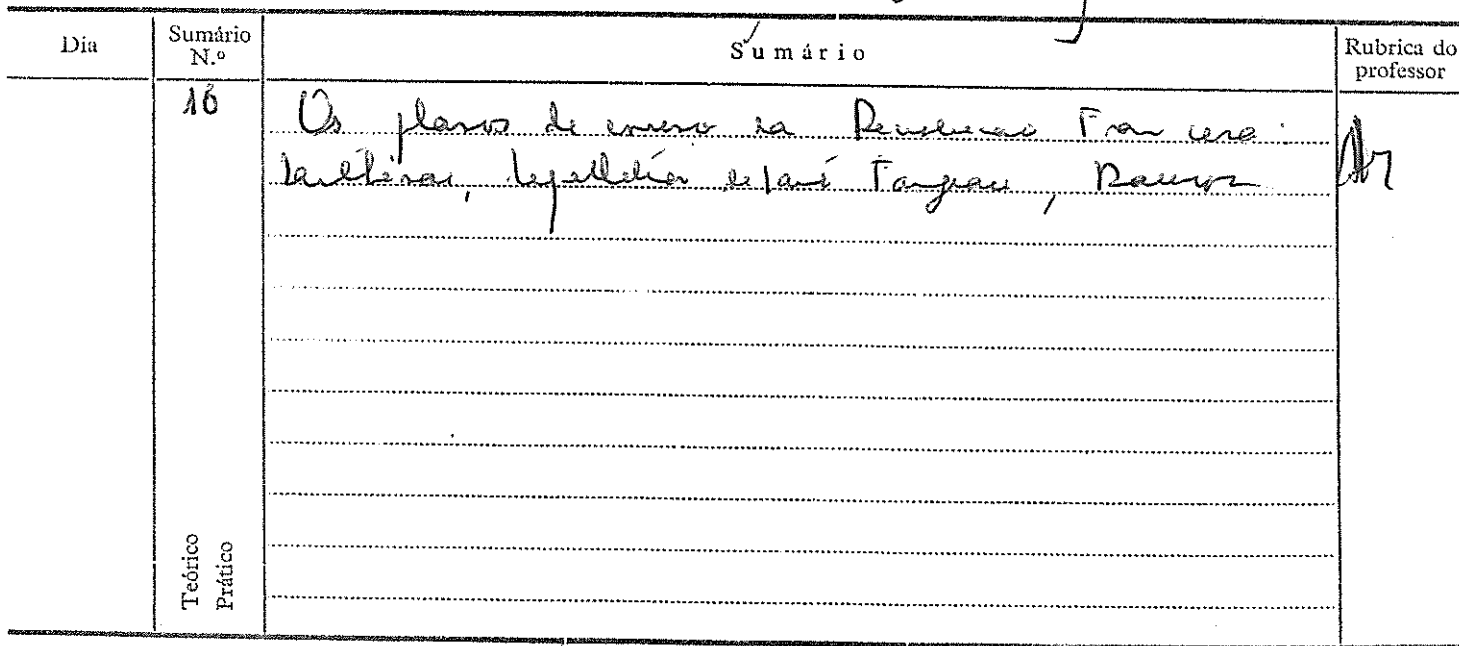 Dia
Sumário
N.º
Sumário
Rubrica do
professor
16
Os planos de ensino na Revolução Francesa:
Lepelletier de Saint Fargeau, Daunou
Teórico
Prático